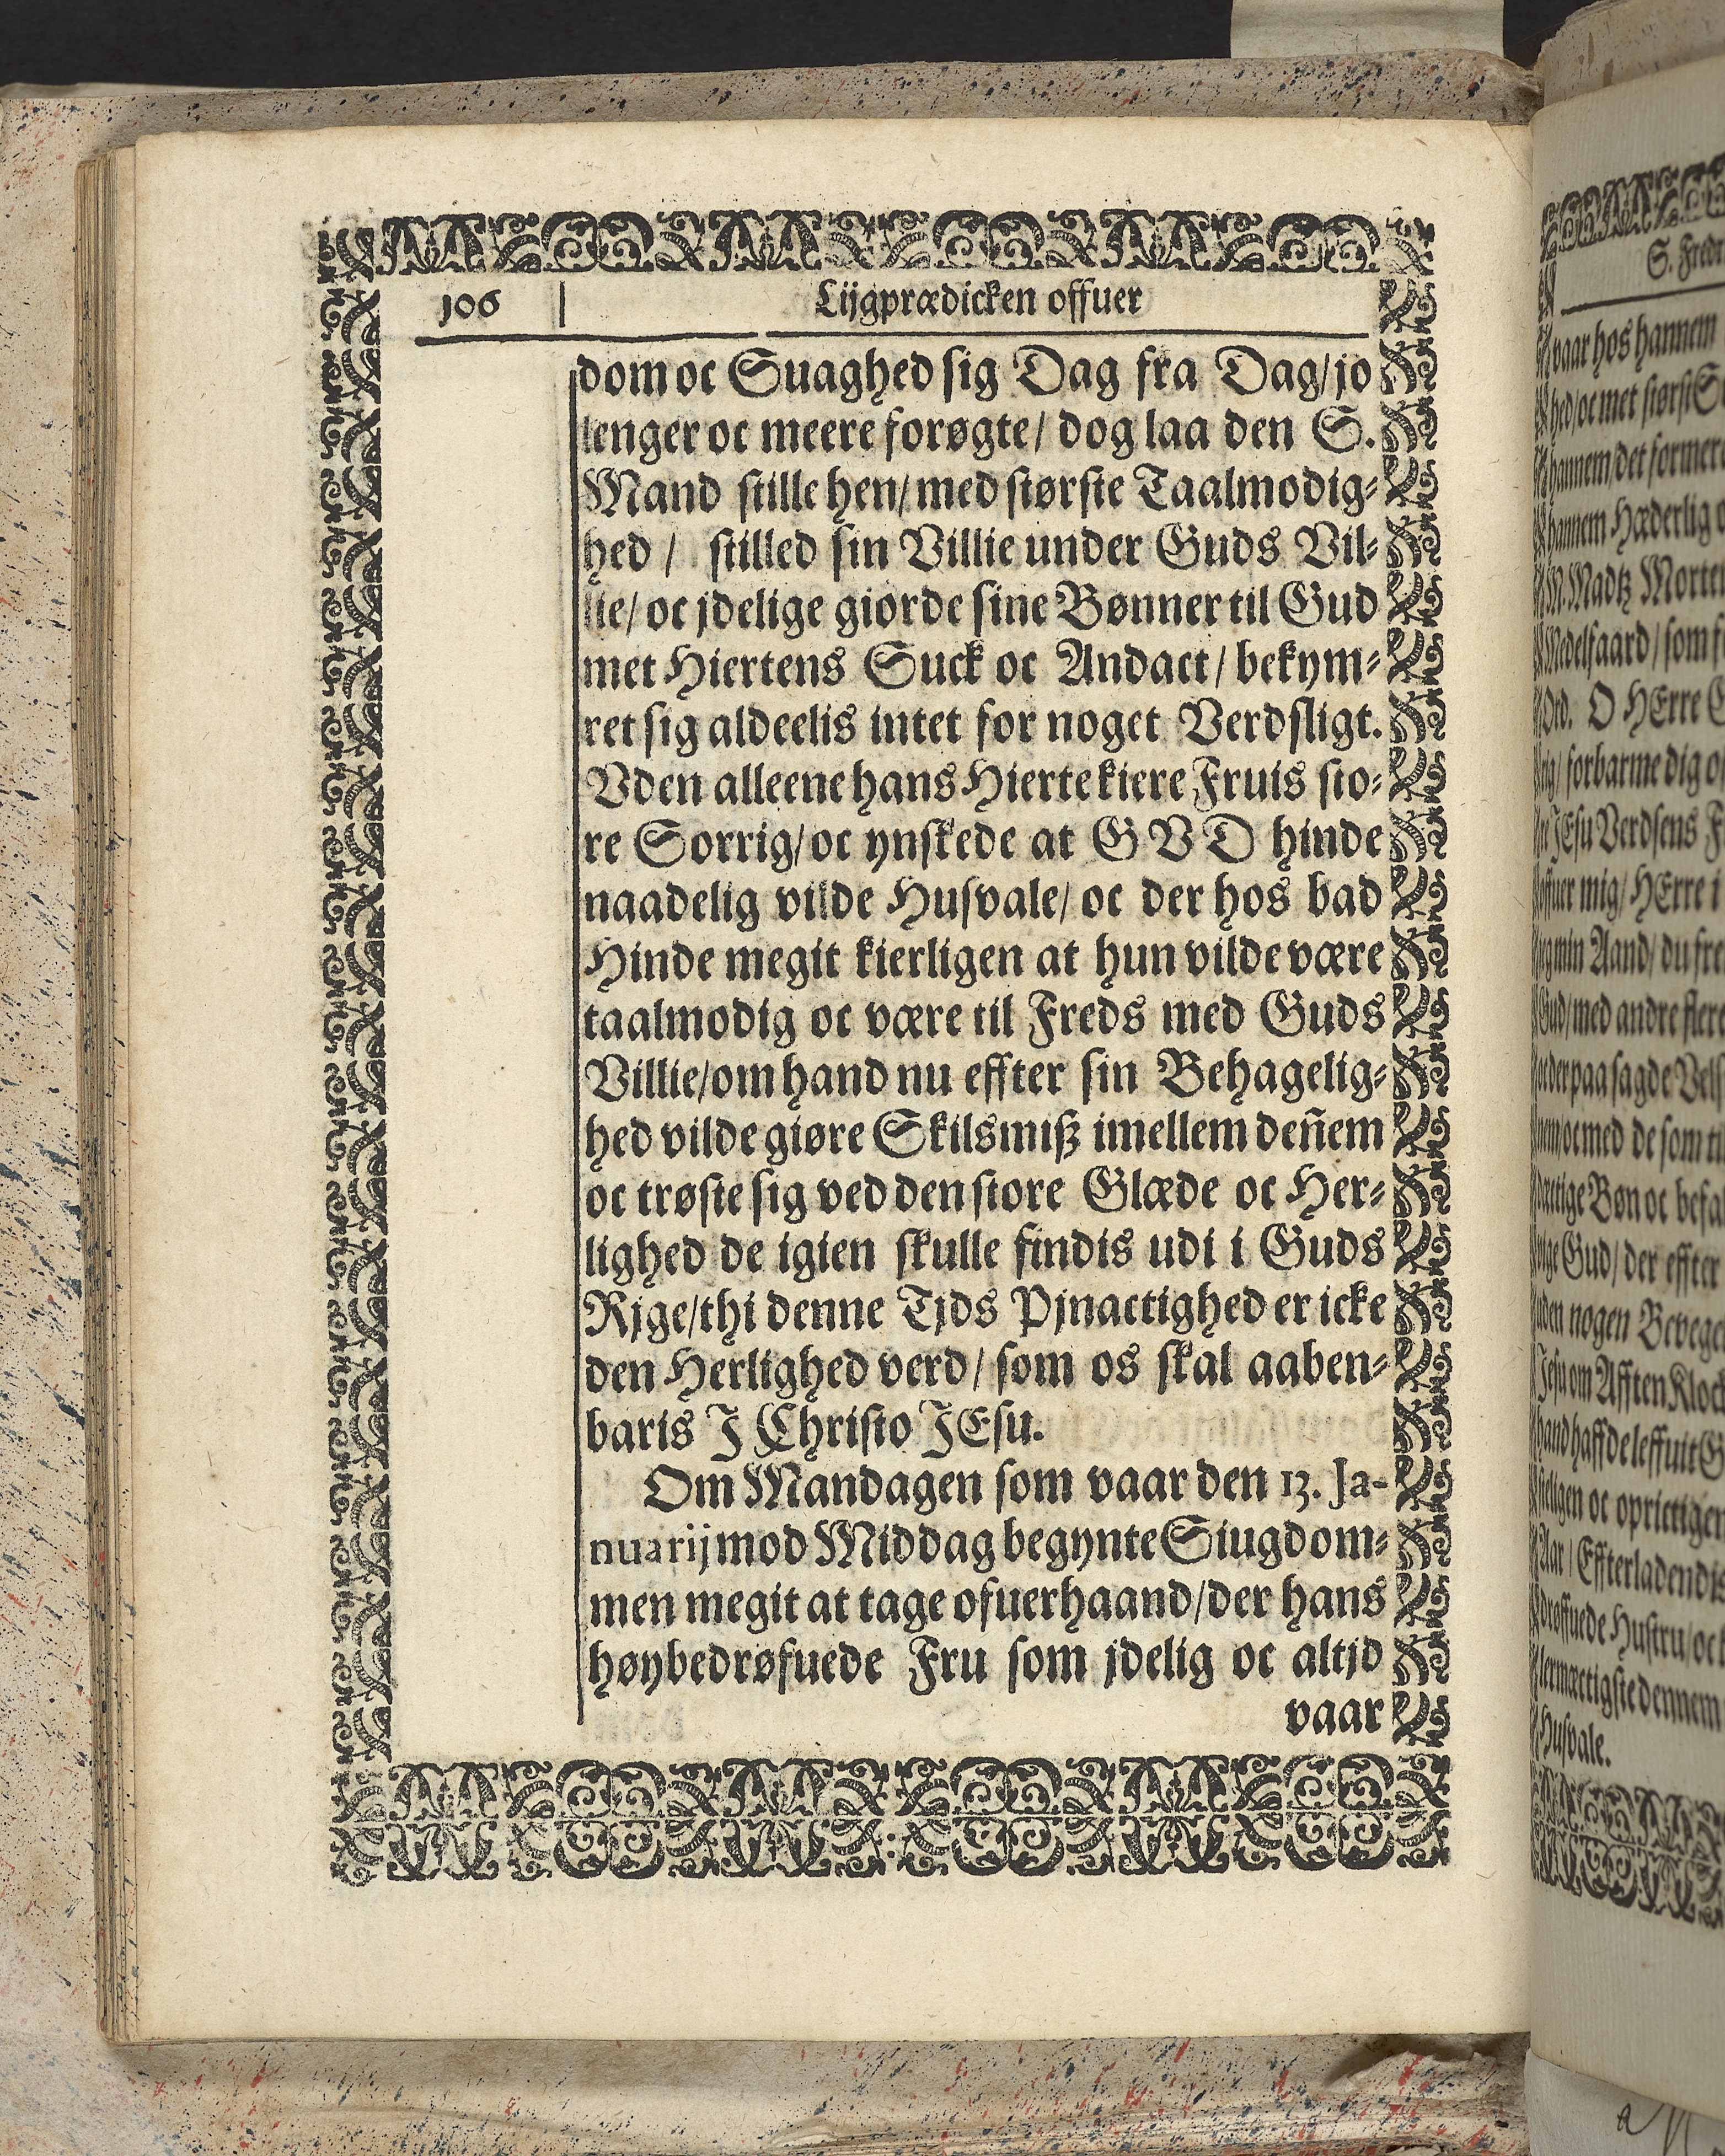 106 Lijgprædicken offuer
dom oc Suaghed sig Dag fra Dag/ jo
lenger oc meere forøgte/ dog laa den S.
Mand stille hen/ med største Taalmodig-
hed / stilled sin Villie under Guds Vil-
lie/ oc jdelige giorde sine Bønner til Gud
met Hiertens Suck oc Andact/ bekym-
ret sig aldeelis intet for noget Verdsligt.
Vden alleene hans Hierte kiere Fruis sto-
re Sorrig/ oc ynskede at GVD hinde
naadelig vilde Husvale/ oc der hos bad
Hinde megit kierligen at hun vilde være
taalmodig oc være til Freds med Guds
Villie/ om hand nu effter sin Behagelig-
hed vilde giøre Skilsmiß imellem deñem
oc trøste sig ved den store Glæde oc Her-
lighed de igien skulle findis udi i Guds
Rjge/ thi denne Tjds Pjnactighed er icke
den Herlighed verd/ som os skal aaben-
baris J Christo JEsu.
Om Mandagen som vaar den 13. Ja-
nuarij mod Middag begynte Siugdom-
men megit at tage ofuerhaand/ der hans
høybedrøfuede Fru som jdelig oc altjd
vaar
S.
vaar hos hannem
hed/ oc met størst
hannem/ det
hannem Hæderlig
M. Madtz
Medelfaard/ som
Ord. O HErre
forbarme dig
JEsu Verdsens
offuer mig/ HErre i
min Aand/ du
Gud/ med andre flere
der paa sagde
oc med de som
Bøn oc
Gud/ der effter
uden nogen
Jesu om Afften
hand haffde leffuit
oc oprictigen
Aar/ Effterladendis
Hustru/ oc
dennem
Husvale.